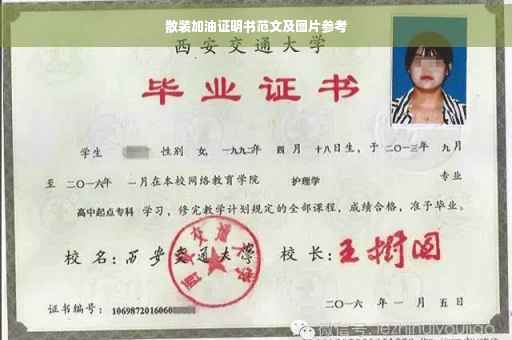 散装加油证明书范文及图片参考
西安交通大学
毕业证书
学生 性别 女, 一九九二年 四 月 十八日生, 于 二〇一三年 九月
至 二〇一六年 一月在本校网络教育学院 护理学 专业
高中起点专科 学习, 修完教学计划规定的全部课程, 成绩合格, 准予毕业。
校 名: 西安交通大学
校 长: 王树国
西安交通大学
证书编号: 1069872016060
二〇一六 年 一 月 五 日
微信号: jezhihuiyoujiao